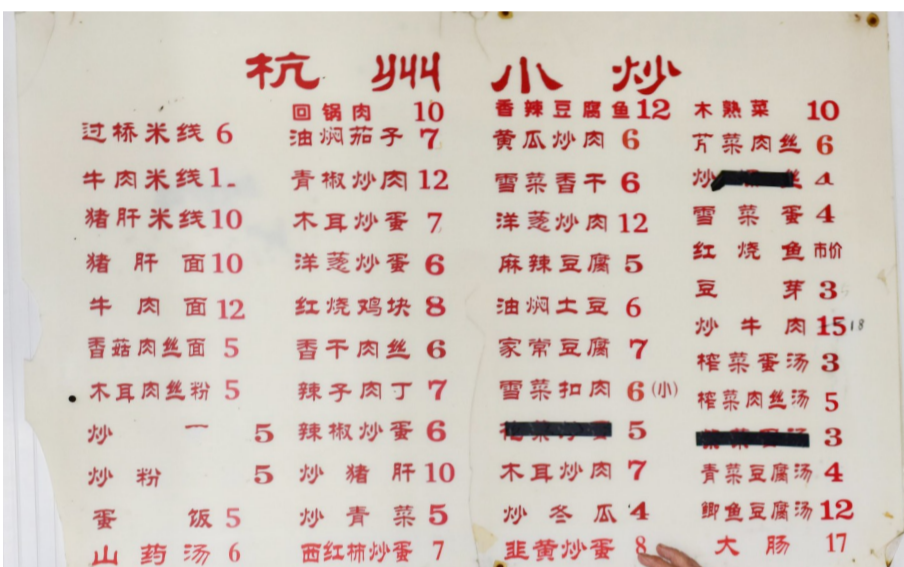 杭州小炒
过桥米线 6
牛肉米线 1
猪肝米线 10
猪肝面 10
牛肉面 12
香菇肉丝面 5
木耳肉丝粉 5
炒一 5
炒粉 5
蛋饭 5
山药汤 6
回锅肉 10
油焖茄子 7
青椒炒肉 12
木耳炒蛋 7
洋葱炒蛋 6
红烧鸡块 8
香干肉丝 6
辣子肉丁 7
辣椒炒蛋 6
炒猪肝 10
炒青菜 5
西红柿炒蛋 7
香辣豆腐鱼 12
黄瓜炒肉 6
雪菜香干 6
洋葱炒肉 12
麻辣豆腐 5
油焖土豆 6
家常豆腐 7
雪菜扣肉 6 (小)
5
木耳炒肉 7
炒冬瓜 4
韭黄炒蛋 8
木熟菜 10
芹菜肉丝 6
炒 丝 4
雪菜蛋 4
红烧鱼 市价
豆芽 3
炒牛肉 15 18
榨菜蛋汤 3
榨菜肉丝汤 5
3
青菜豆腐汤 4
鲫鱼豆腐汤 12
大肠 17